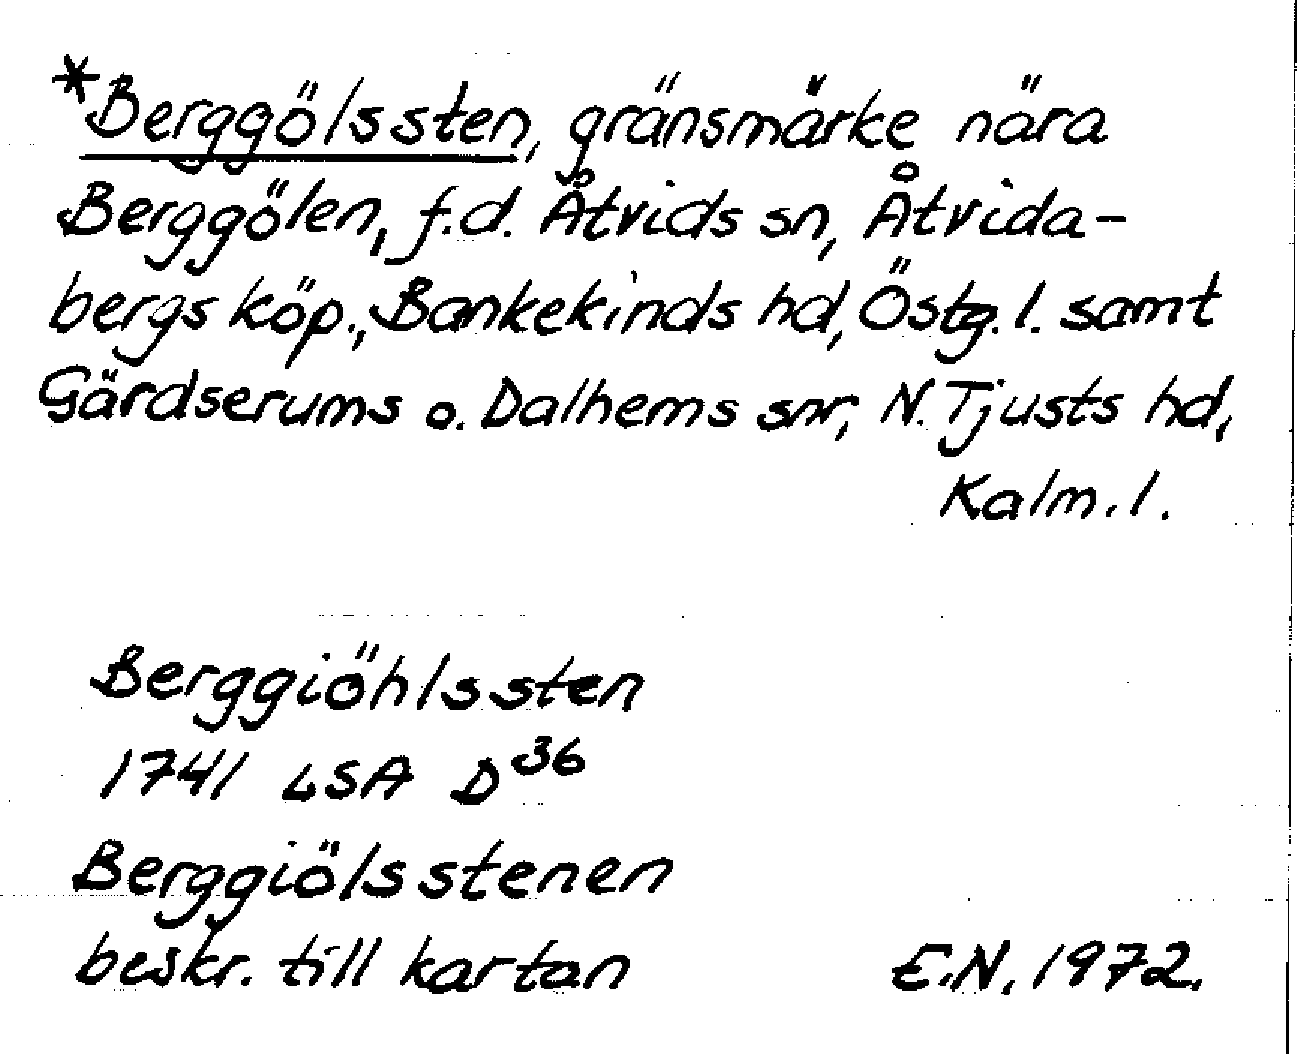 *Berggölssten, gränsmärke nära
Berggölen, f.d. Åtvids sn, Åtvida-
bergs köp., Bankekinds hd, Östg. l. samt
Gärdserums o. Dalhems snr, N. Tjusts hd,
Kalm. l.
Berggiöhlssten
1741 LSA D36
Berggiölsstenen
beskr. till kartan
E.N. 1972.